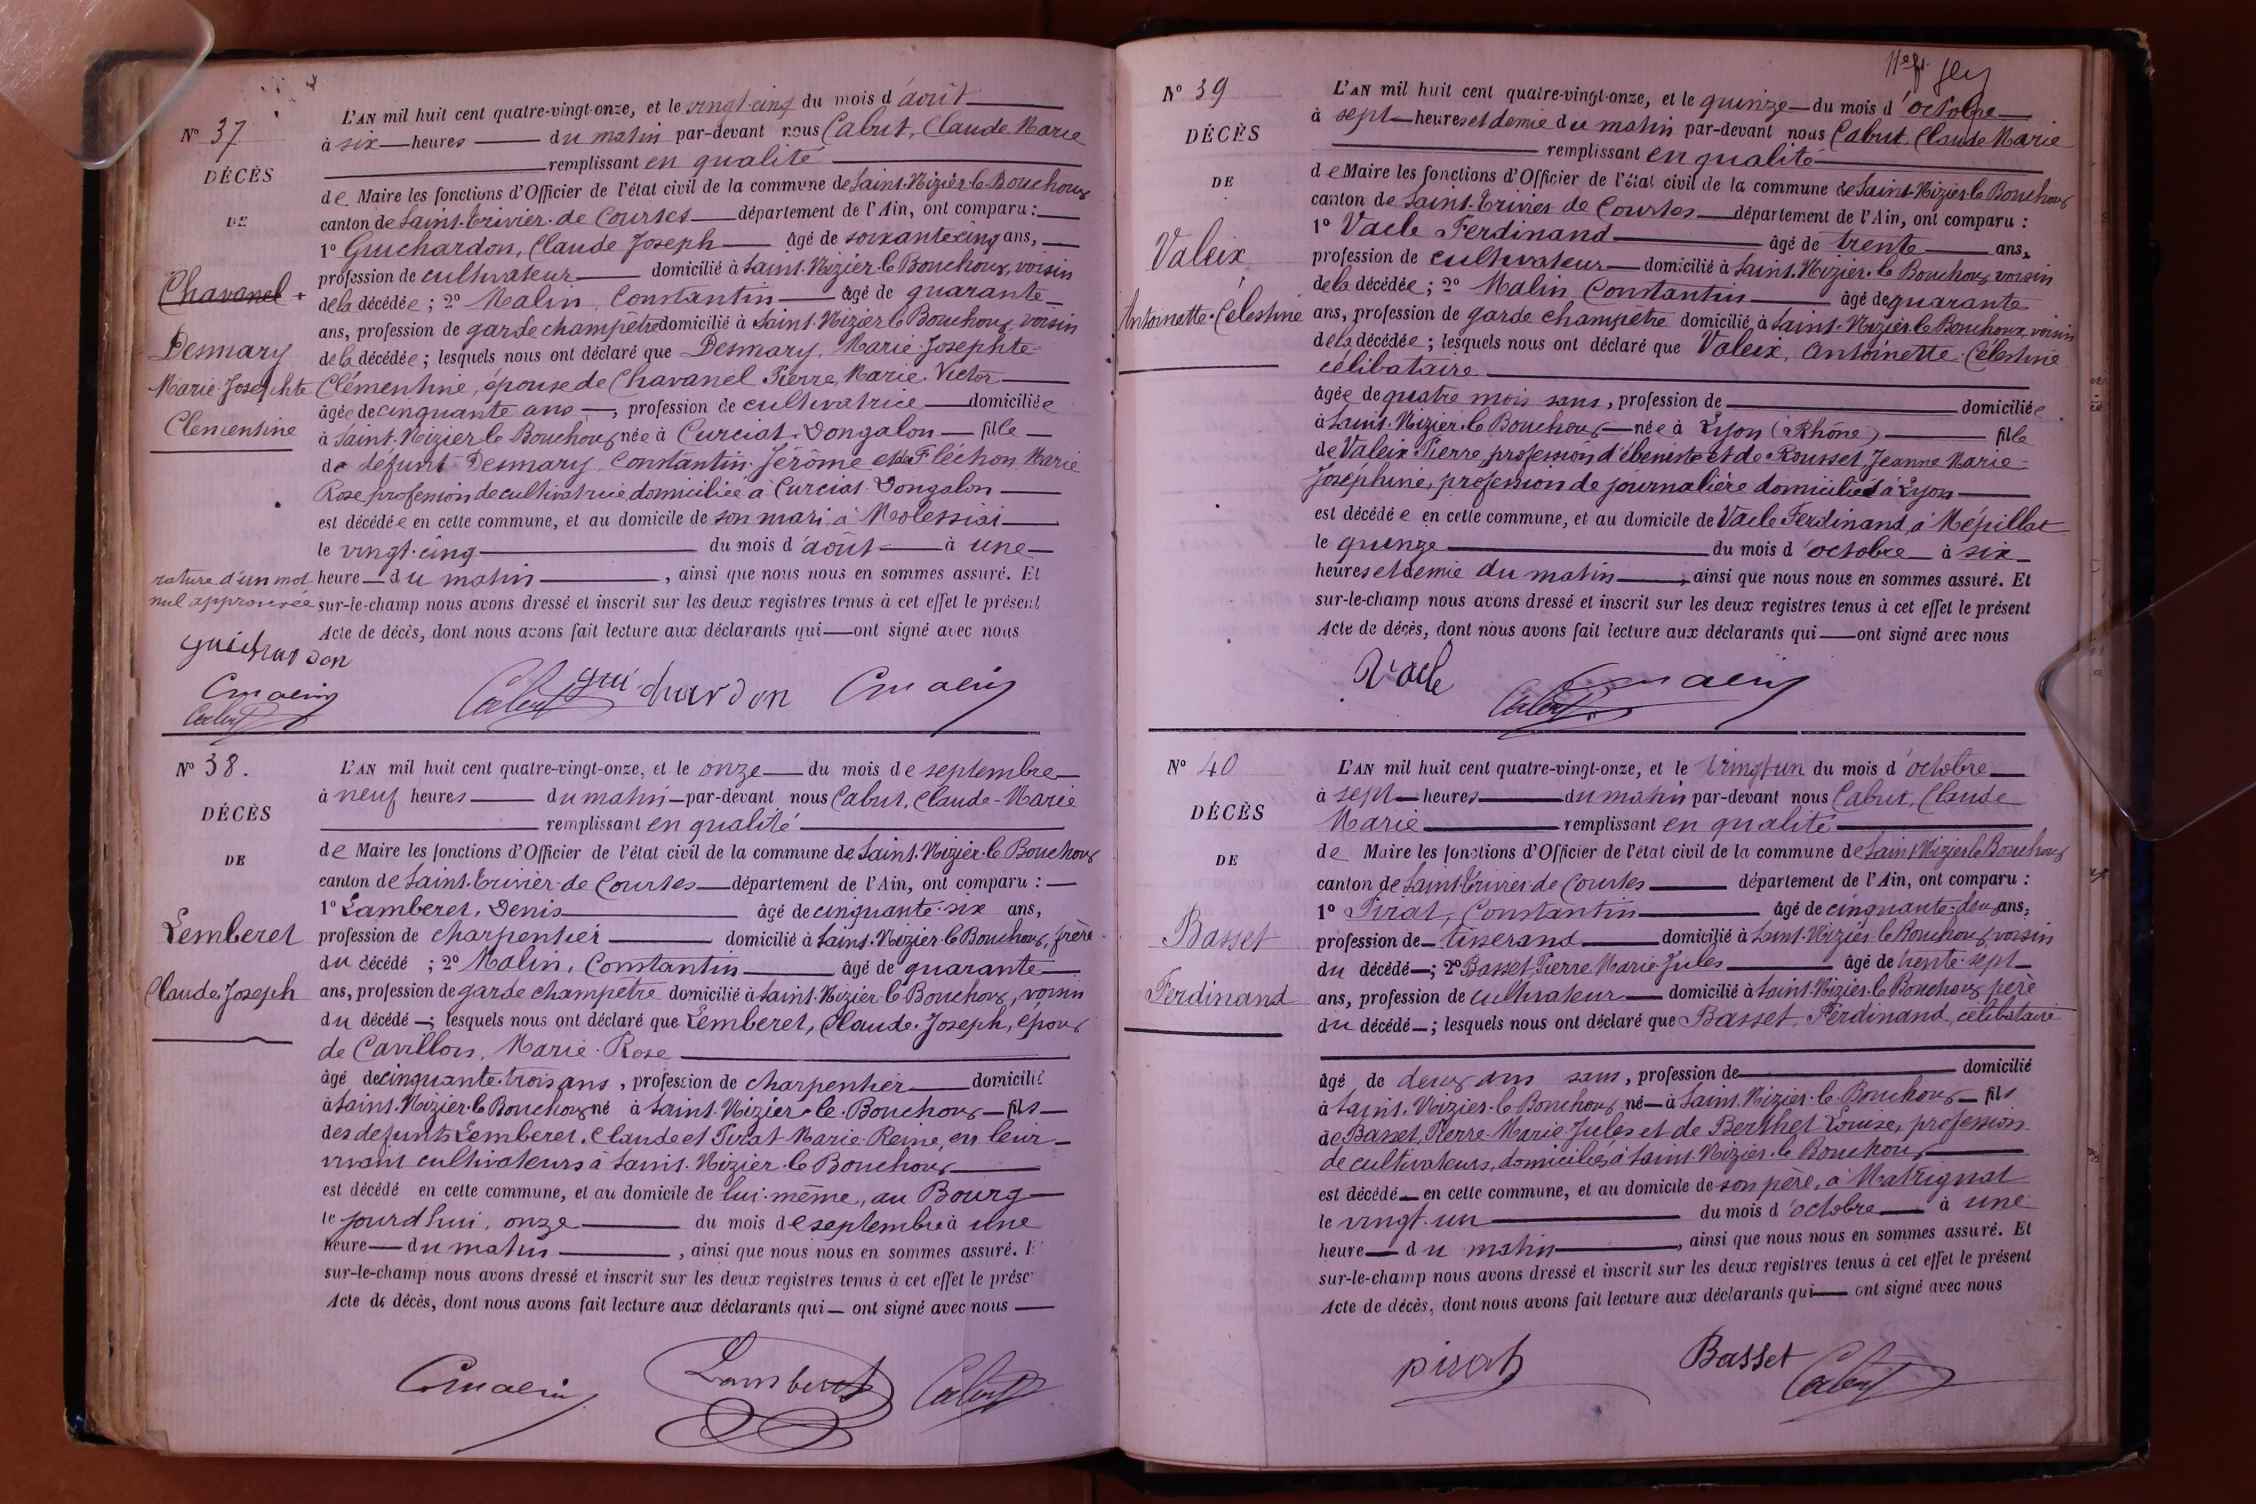 N° 37
DÉCÈS
DE
Chavanel +
Desmary
Marie Josephte
Clémentine
rature d'un mot
nul approuvée
Guichardon
Cmalin
Cabut
L'AN mil huit cent quatre-vingt-onze, et le vingt-cinq du mois d'août
à six heures du matin par-devant nous Cabut, Claude Marie
remplissant en qualité
de Maire les fonctions d'Officier de l'état civil de la commune de Saint-Nizier-le-Bouchoux
canton de Saint-Trivier-de-Courtes département de l'Ain, ont comparu :
1° Guichardon, Claude Joseph âgé de soixante-cinq ans,
profession de cultivateur domicilié à Saint-Nizier-le-Bouchoux, voisin
de la décédée ; 2° Malin, Constantin âgé de quarante
ans, profession de garde champêtre domicilié à Saint-Nizier-le-Bouchoux, voisin
de la décédée ; lesquels nous ont déclaré que Desmary, Marie-Josephte-
Clémentine, épouse de Chavanel Pierre, Marie, Victor
âgée de cinquante ans, profession de cultivatrice domiciliée
à Saint-Nizier-le-Bouchoux née à Curciat-Dongalon fille
de défunt Desmary Constantin Jérôme et de Fléchon Marie
Rose, profession de cultivatrice, domiciliée à Curciat-Dongalon
est décédée en cette commune, et au domicile de son mari, à Molessiat
le vingt-cinq du mois d'août à une
heure du matin, ainsi que nous nous en sommes assuré. Et
sur-le-champ nous avons dressé et inscrit sur les deux registres tenus à cet effet le présent
Acte de décès, dont nous avons fait lecture aux déclarants qui ont signé avec nous
Cabut Guichardon Cmalin
N° 38.
DÉCÈS
DE
Lemberet
Claude Joseph
L'AN mil huit cent quatre-vingt-onze, et le onze du mois de septembre
à neuf heures du matin par-devant nous Cabut, Claude-Marie
remplissant en qualité
de Maire les fonctions d'Officier de l'état civil de la commune de Saint-Nizier-le-Bouchoux
canton de Saint-Trivier-de-Courtes département de l'Ain, ont comparu :
1° Lamberet, Denis âgé de cinquante-six ans,
profession de charpentier domicilié à Saint-Nizier-le-Bouchoux, frère
du décédé ; 2° Malin, Constantin âgé de quarante
ans, profession de garde champêtre domicilié à Saint-Nizier-le-Bouchoux, voisin
du décédé ; lesquels nous ont déclaré que Lemberet, Claude-Joseph, époux
de Cavillon, Marie-Rose
âgé de cinquante-trois ans, profession de charpentier domicilié
à Saint-Nizier-le-Bouchoux né à Saint-Nizier-le-Bouchoux fils
des defunts Lemberet, Claude et Pirat Marie-Reine, en leur
vivant cultivateurs à Saint-Nizier-le-Bouchoux
est décédé en cette commune, et au domicile de lui-même, au Bourg
le jourd'hui, onze du mois de septembre à une
heure du matin, ainsi que nous nous en sommes assuré. E
sur-le-champ nous avons dressé et inscrit sur les deux registres tenus à cet effet le prése
Acte de décès, dont nous avons fait lecture aux déclarants qui ont signé avec nous
Cmalin Lamberet Cabut
N° 39
DÉCÈS
DE
Valeix
Antoinette-Célestine
L'AN mil huit cent quatre-vingt-onze, et le quinze du mois d'octobre
à sept heures et demie du matin par-devant nous Cabut, Claude Marie
remplissant en qualité
de Maire les fonctions d'Officier de l'état civil de la commune de Saint-Nizier-le-Bouchoux
canton de Saint-Trivier de Courtes département de l'Ain, ont comparu :
1° Vacle Ferdinand âgé de trente ans,
profession de cultivateur domicilié à Saint-Nizier-le-Bouchoux voisin
de la décédée ; 2° Malin Constantin âgé de quarante
ans, profession de garde champetre domicilié à Saint-Nizier-le-Bouchoux, voisin
de la décédée ; lesquels nous ont déclaré que Valeix, Antoinette-Célestine
célibataire
âgée de quatre mois sans, profession de domiciliée
à Saint-Nizier-le-Bouchoux née à Lyon (Rhône) fille
de Valeix Pierre, profession d'ébeniste et de Rousset, Jeanne Marie-
Joséphine, profession de journalière domiciliés à Lyon
est décédée en cette commune, et au domicile de Vacle Ferdinand, à Mépillat
le quinze du mois d'octobre à six
heures et demie du matin, ainsi que nous nous en sommes assuré. Et
sur-le-champ nous avons dressé et inscrit sur les deux registres tenus à cet effet le présent
Acte de décès, dont nous avons fait lecture aux déclarants qui ont signé avec nous
Vacle Cabut Cmalin
N° 40
DÉCÈS
DE
Basset
Ferdinand
L'AN mil huit cent quatre-vingt-onze, et le vingt un du mois d'octobre
à sept heures du matin par-devant nous Cabut, Claude
Marie remplissant en qualité
de Maire les fonctions d'Officier de l'état civil de la commune de Saint-Nizier-le-Bouchoux
canton de Saint-Trivier-de-Courtes département de l'Ain, ont comparu :
1° Pirat, Constantin âgé de cinquante-deux ans,
profession de tisserand domicilié à Saint-Nizier-le-Bouchoux, voisin
du décédé ; 2° Basset, Pierre Marie Jules âgé de trente-sept
ans, profession de cultivateur domicilié à Saint-Nizier-le-Bouchoux père
du décédé ; lesquels nous ont déclaré que Basset, Ferdinand, célibataire
âgé de deux ans sans, profession de domicilié
à Saint-Nizier-le-Bouchoux né à Saint-Nizier-le-Bouchoux fils
de Basset, Pierre-Marie Jules et de Berthet Louise, profession
de cultivateurs, domiciliés à Saint-Nizier-le-Bouchoux
est décédé en cette commune, et au domicile de son père, à Matrignat
le vingt-un du mois d'octobre à une
heure du matin, ainsi que nous nous en sommes assuré. Et
sur-le-champ nous avons dressé et inscrit sur les deux registres tenus à cet effet le présent
Acte de décès, dont nous avons fait lecture aux déclarants qui ont signé avec nous
pirat Basset Cabut